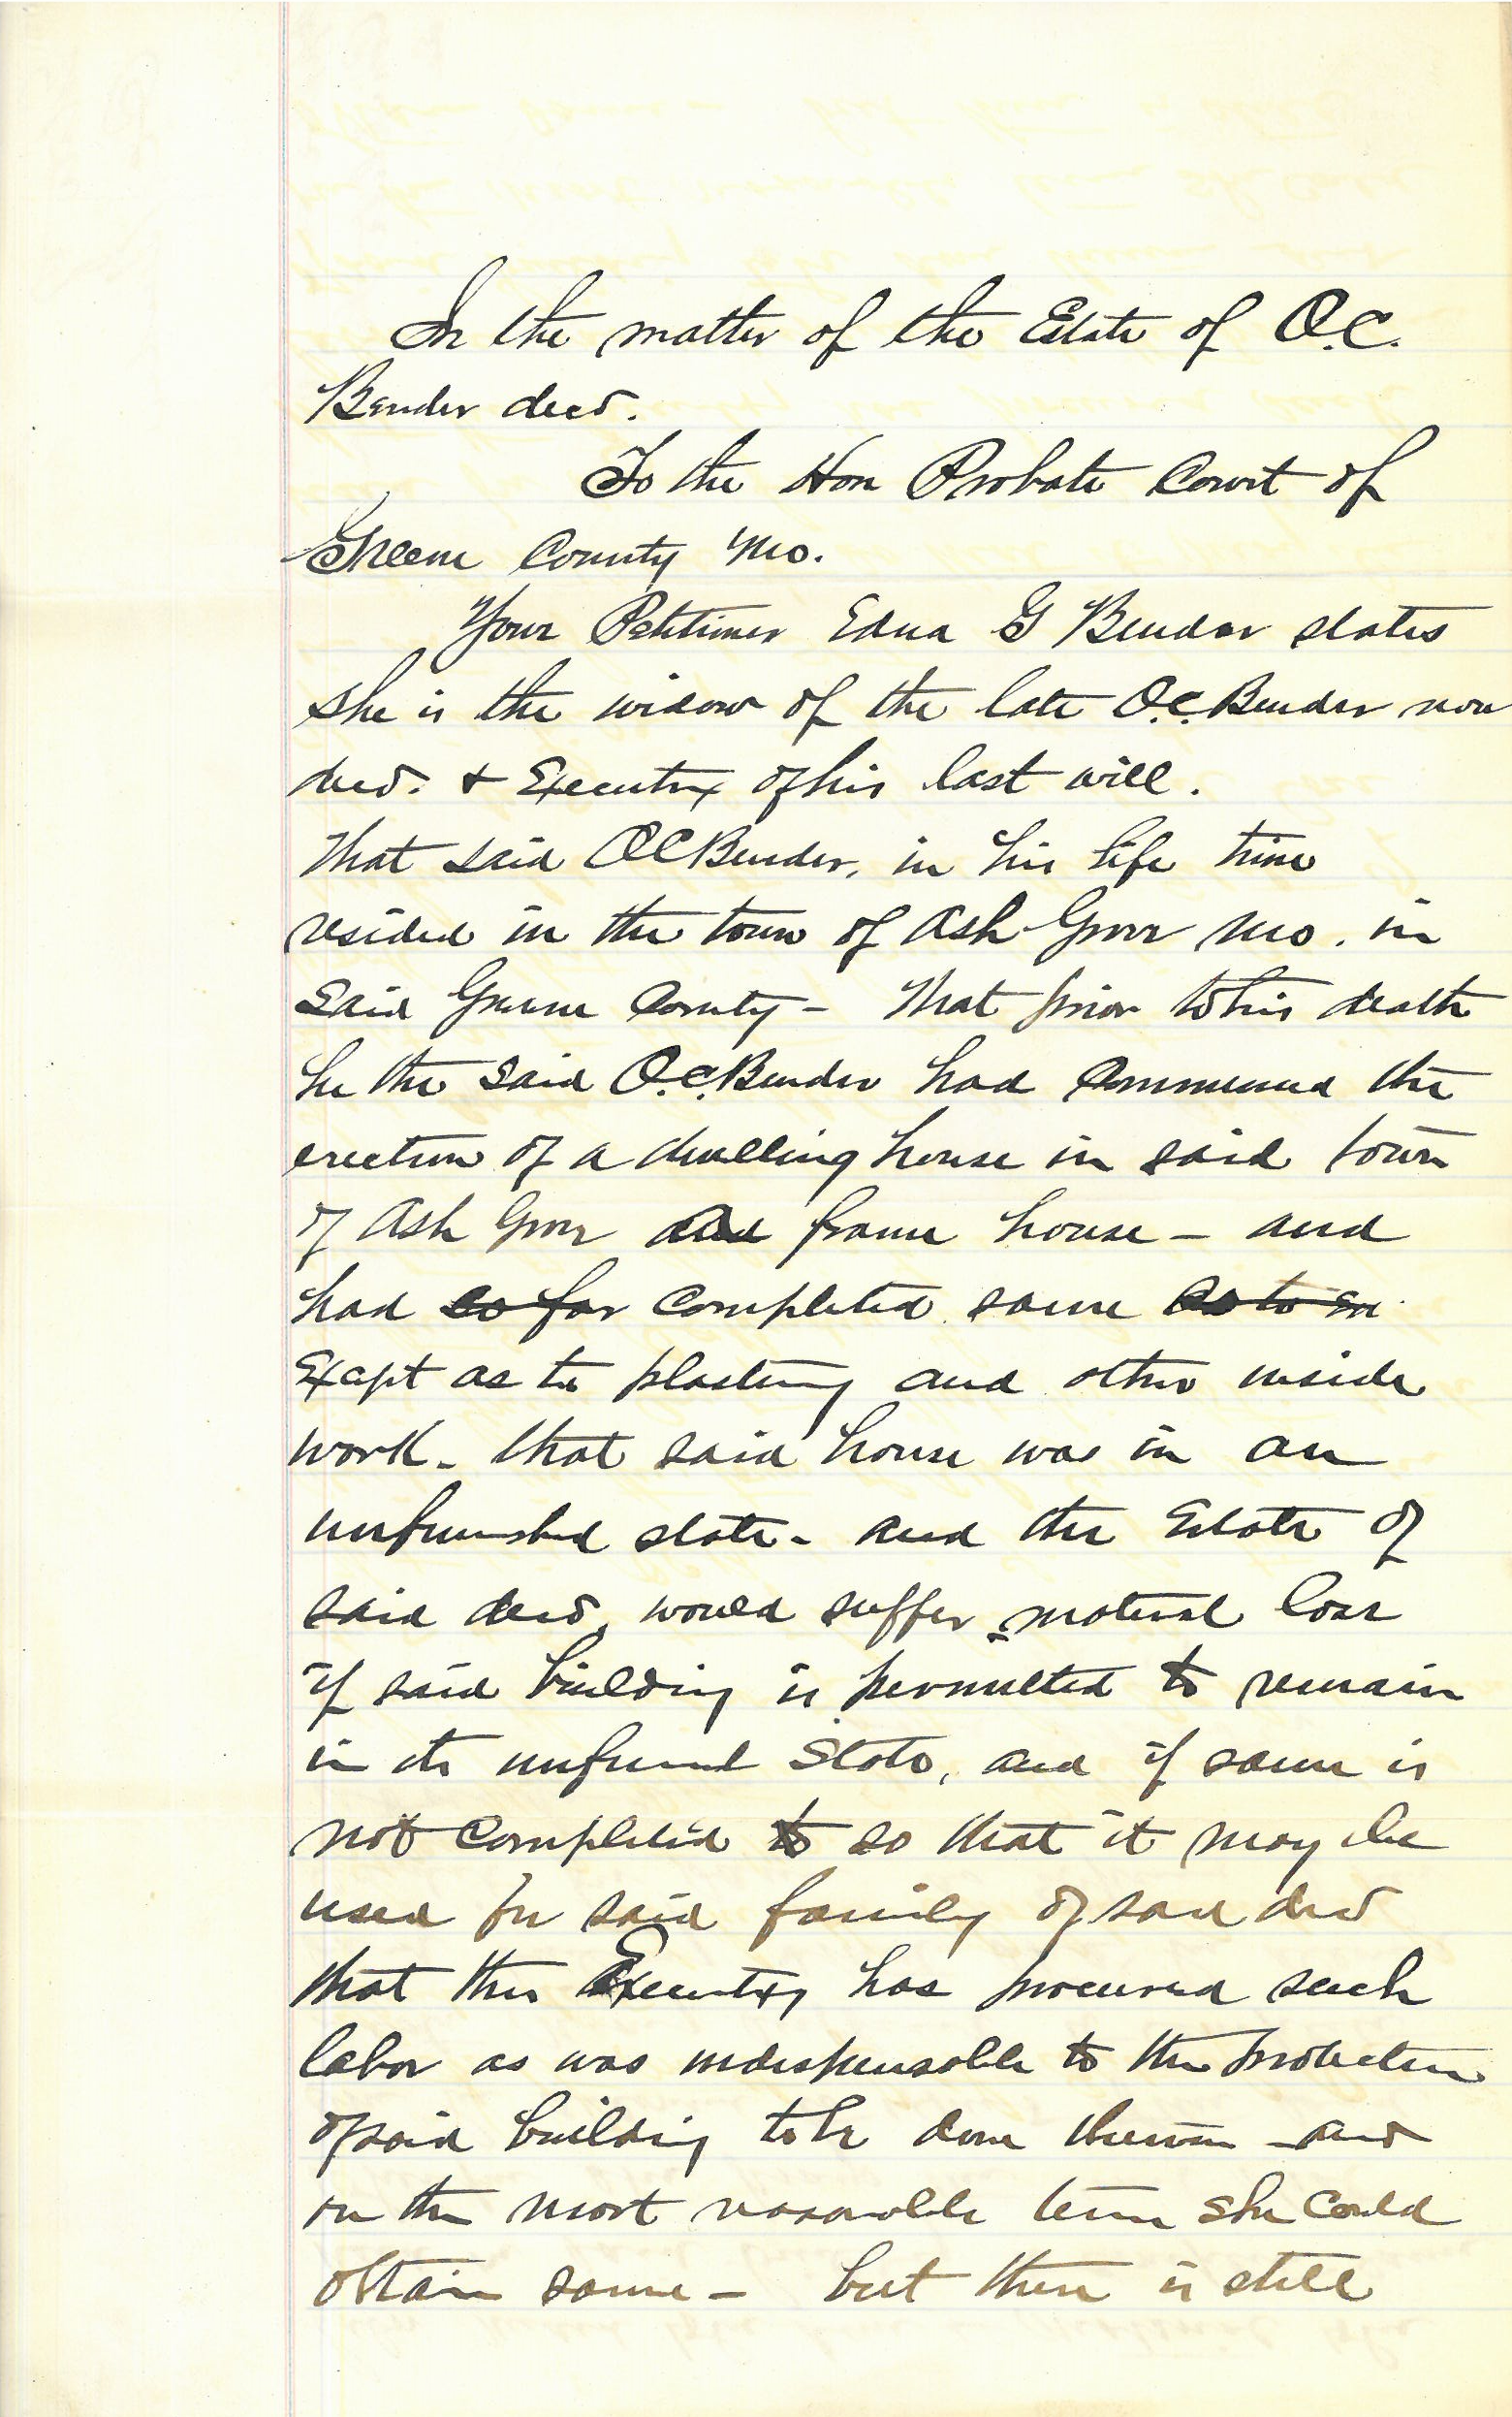 In the matter of the Estate of O.C.
Bender decd.
To the Hon Probate Court of
Greene County Mo.
Your Petitioner Edna G Bender states
she is the widow of the late O.C. Bender now
decd. & Executrix of his last will.
That said O C Bender, in his life time
resided in the town of Ash Grove Mo. in
said Greene County - That prior to his death
he the said O.C. Bender had commenced the
erection of a dwelling house in said town
of Ash Grove frame house - and
had so far completed same as to in
Except as to plastering and other inside
work - that said house was in an
unfinished state - and the Estate of
said decd would suffer material loss
if said building is permitted to remain
in its unfinished State, and if same is
not completed to so that it may be
used for said family of said decd
that this Executrix has procured such
labor as was indispensable to the protection
of said building to be done thereon - and
on the most reasonable terms she could
obtain same - but there is still